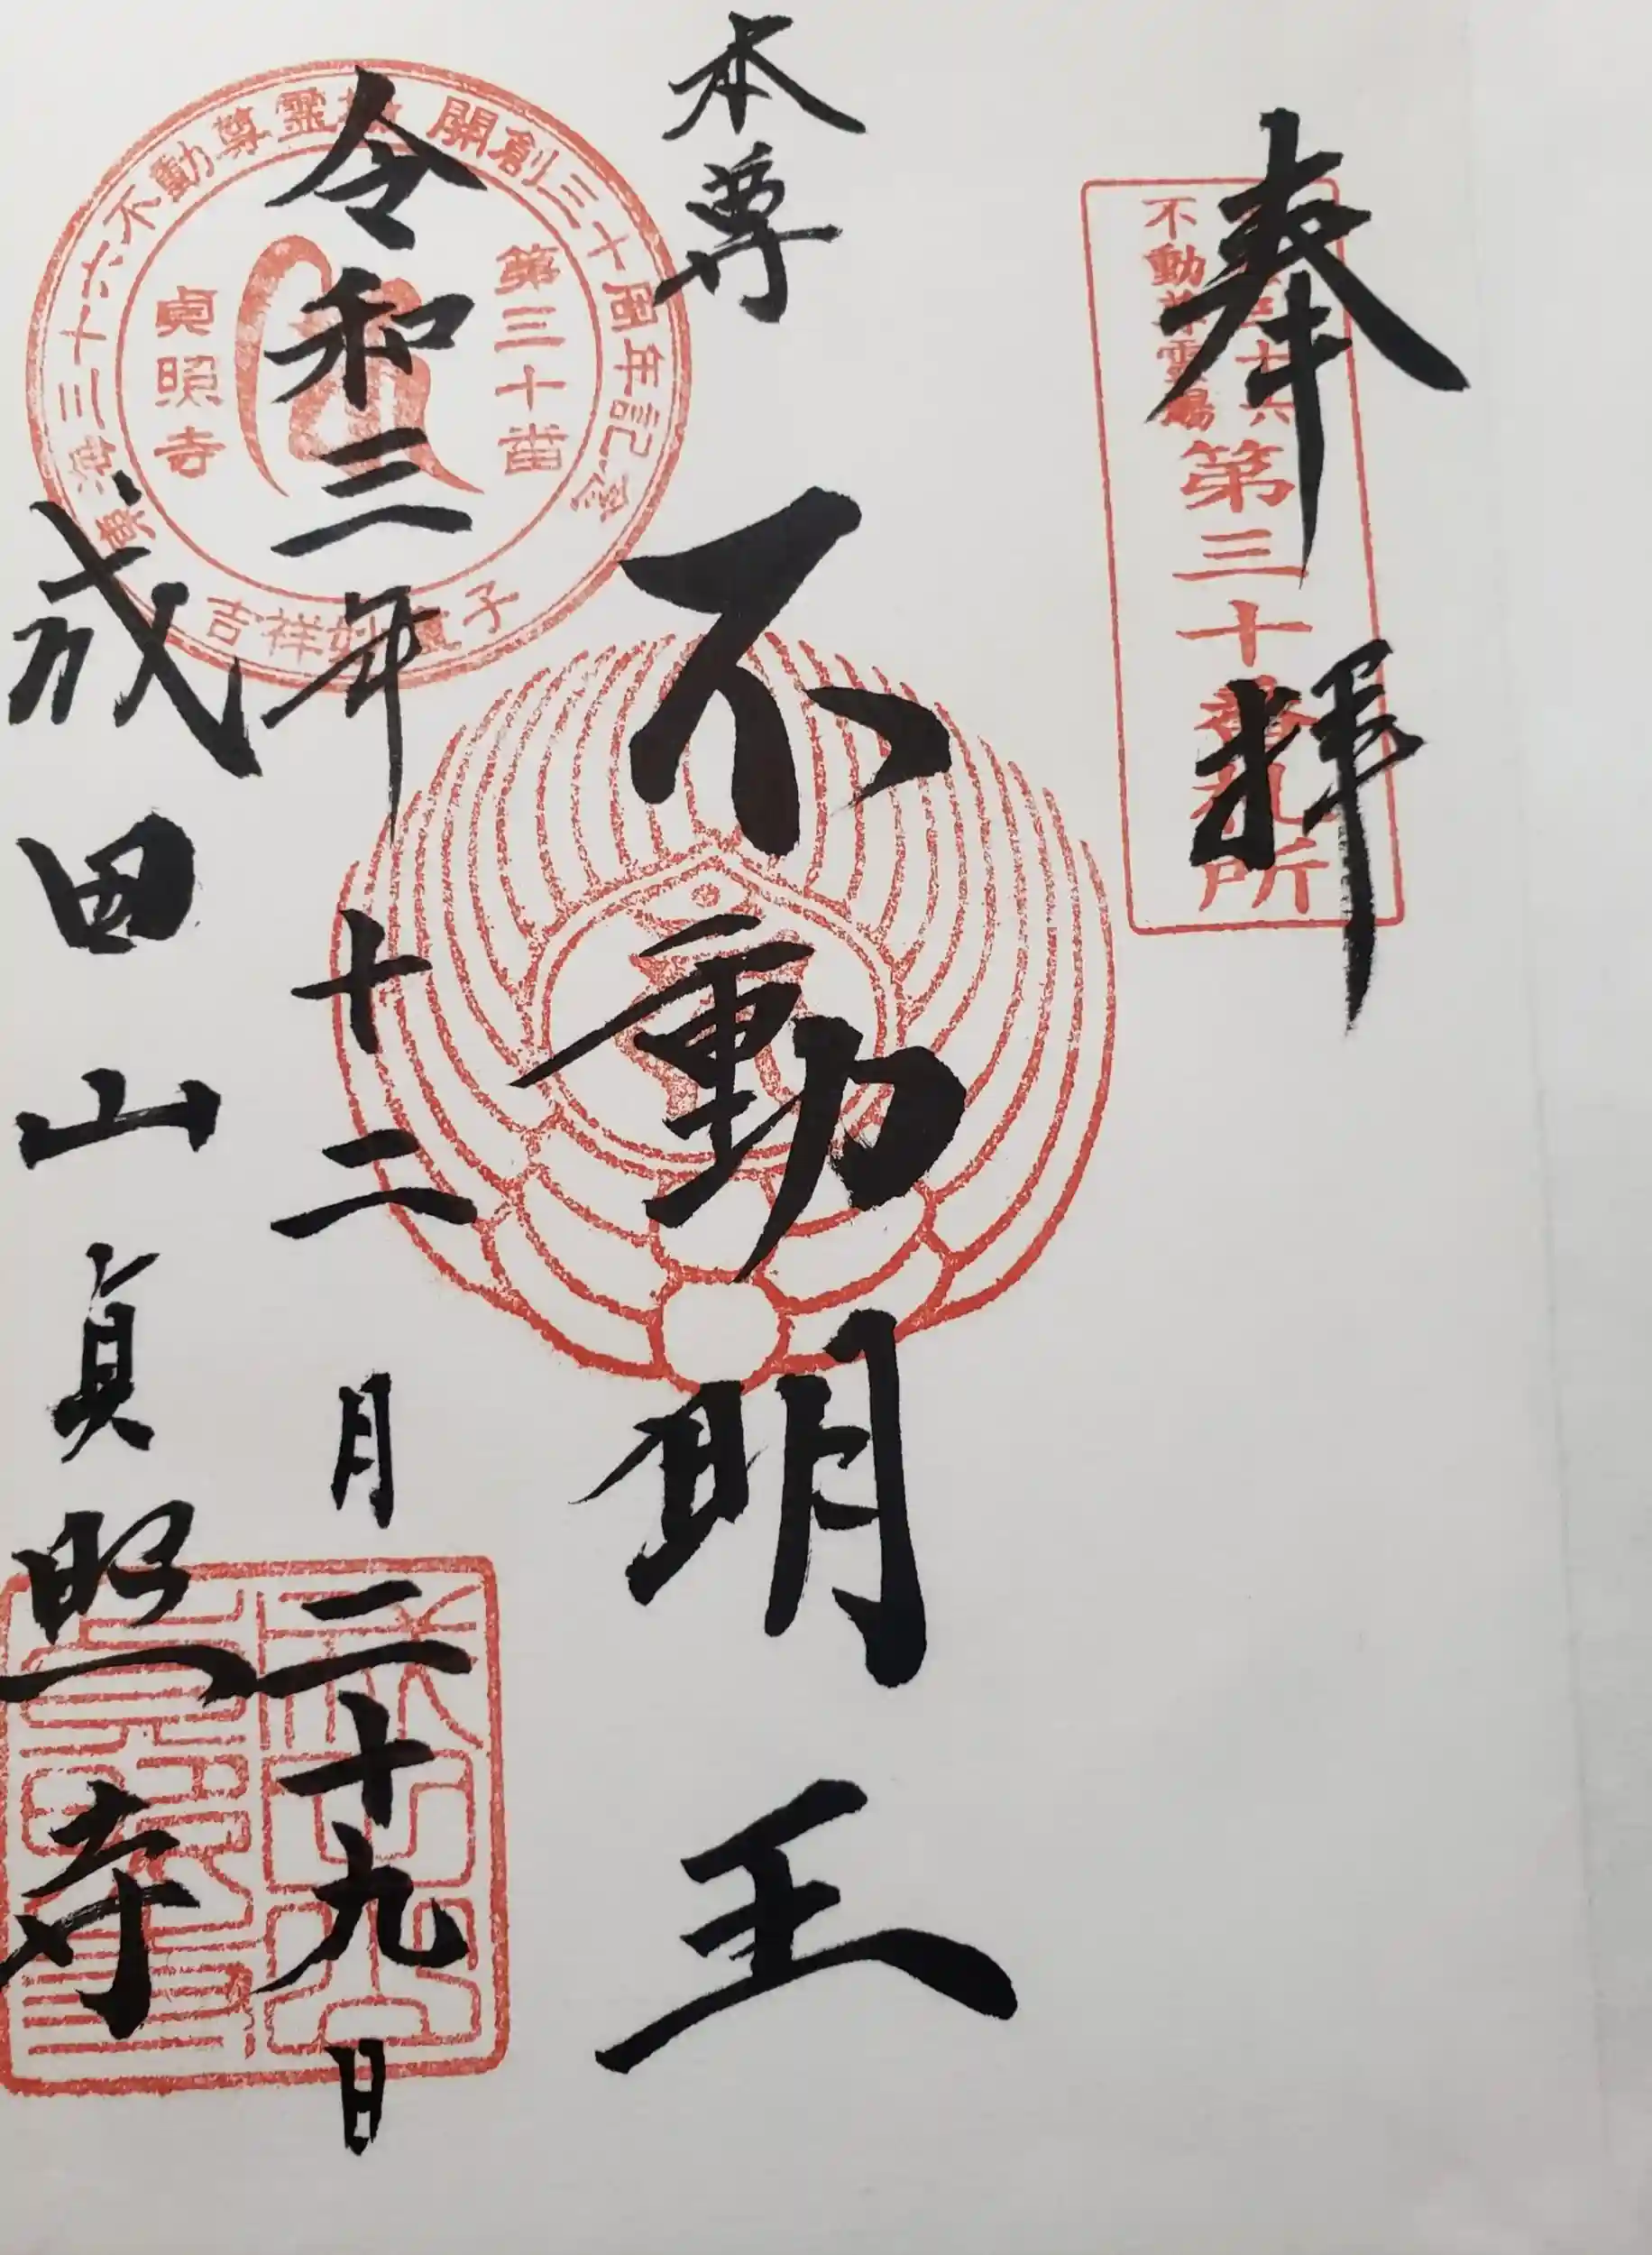 奉拝
不動尊霊場
第三十番札所
本尊
不動明王
令和三年十二月二十九日
成田山貞照寺
開創三十周年記念
三十六不動尊霊場
第三十番
貞照寺
吉祥妙童子